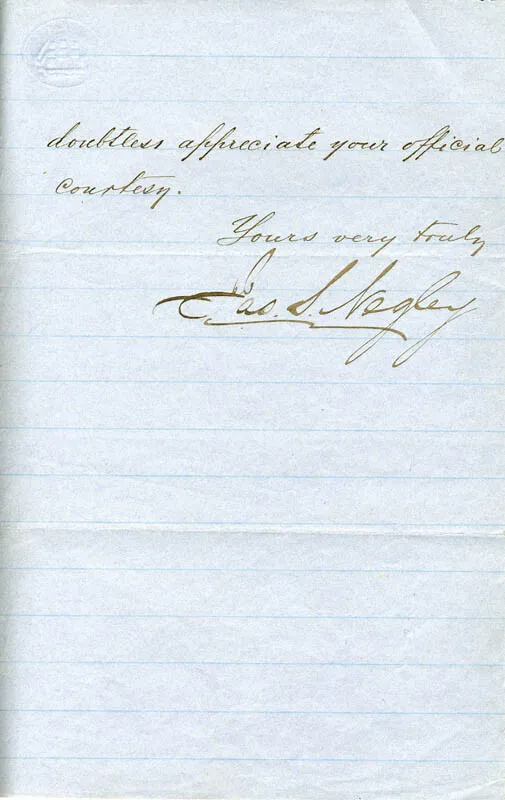 doubtless appreciate your official
courtesy.
Yours very truly
Jas. S. Negley